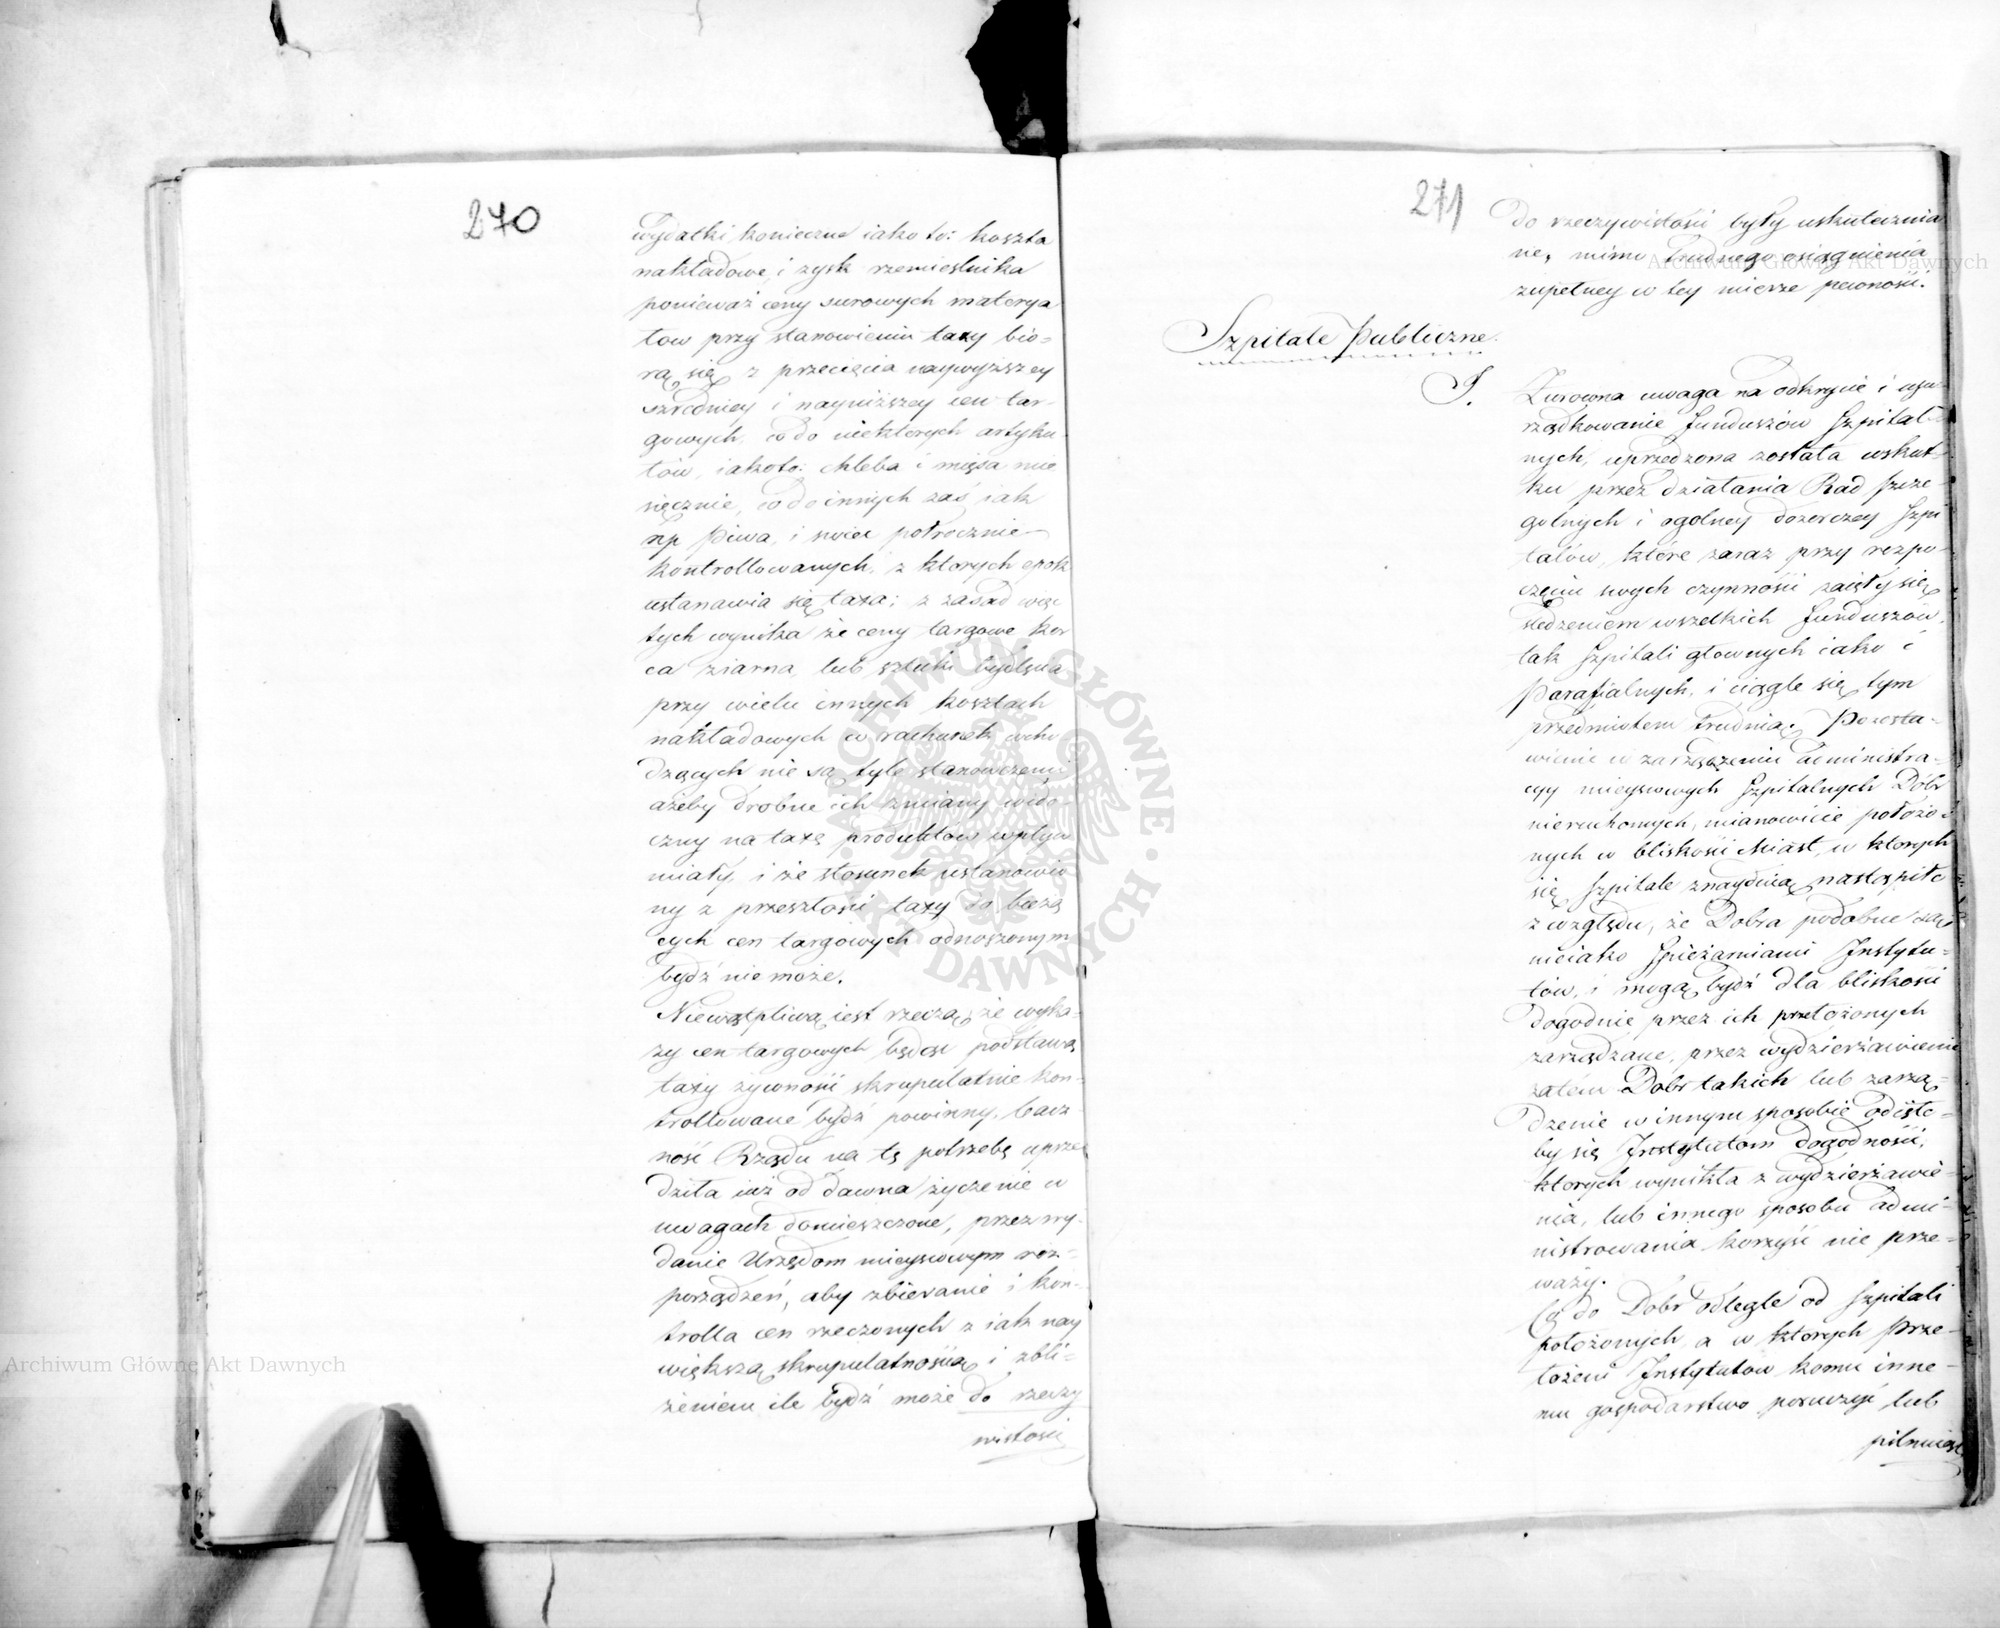 270
wydatki konieczne iako to: koszta
nakładowe, i zysk rzemieślnika
ponieważ ceny surowych materya
łow przy stanowieniu taxy bio-
rą się z przecięcia naywyższey
szredniey i nayniższey cen tar-
gowych, co do niektorych artyku-
łów, iakoto: chleba i mięsa mie
sięcznie, co do innych zaś iak
np piwa, i swiec połrocznie
kontrollowanych, z ktorych epok
ustanawia się taxa; z zasad więc
tych wynika że ceny targowe kor
ca ziarna, lub sztuki bydlęcia
przy wielu innych kosztach
nakładowych w rachunek wcho
dzących nie są tyle stanowczemi
ażeby drobne ich zmiany wido-
czny na taxę produktów wpływ
miały, i że stosunek ustanowio
ny z przeszłości taxy do bieżą
cych cen targowych odnoszonym
bydź nie może.
Niewątpliwą iest rzeczą, że wyka-
zy cen targowych będąc podstawą
taxy żywności skrupulatnie kon-
trollowane bydź powinny, bacz-
ność Rządu na tę potrzebę uprze
dziła iuż od dawna życzenie w
uwagach domieszczone, przez wy-
danie Urzędom mieyscowym roz-
porządzeń, aby zbieranie i kon-
trolla cen rzeczonych z iak nay
większą skrupulatnością i zbli-
żeniem ile bydź może do rzeczy
wistości
271
do rzeczywistości były uskutecznia
ne, mimo trudnego osiągnienia
zupełney w tey mierze pewności.
Szpitale Publiczne.
I.
Zarówna uwaga na odkrycie i upo-
rządkowanie funduszów Szpital-
nych, uprzedzona została wskut-
ku przez działania Rad szcze-
gulnych i ogolney dozorczey Szpi
talów, które zaraz przy rozpo-
częciu swych czynności zaięły się
śledzeniem wszelkich funduszów,
tak Szpitali głownych iako i
Parafialnych, i ciągle się tym
przedmiotem trudnią. Pozosta-
wienie w zarządzeniu administra-
cyy mieyscowych Szpitalnych Dóbr
nieruchomych, mianowicie położo-
nych w bliskości Miast, w ktorych
się Szpitale znayduią, nastąpiło
z względu, że Dobra podobne są
nieiako spiżarniami Instytu-
tów, i mogą bydź dla bliskości
dogodnie przez ich przełożonych
zarządzane, przez wydzierżawienie
zatem Dobr takich lub zarzą-
dzenie w innym sposobie odięło-
by się Instytutom dogodności,
ktorych wynikła z wydzierżawie-
nia, lub innego sposobu admi-
nistrowania korzyść nie prze-
waży.
Co do Dobr odlegle od Szpitali
położonych, a w ktorych prze-
łożeni Instytutow komu inne-
mu gospodarstwo poruczyć lub
pilnować
Archiwum Główne Akt Dawnych
Archiwum Główne Akt Dawnych
ARCHIWUM GŁÓWNE AKT DAWNYCH